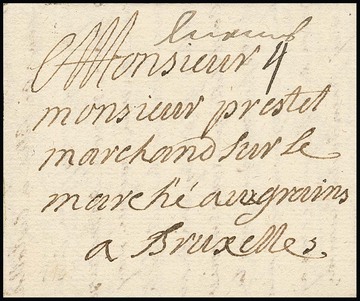 Monsieur 4
monsieur prestet
marchand sur le
marché aux grains
a Bruxelles